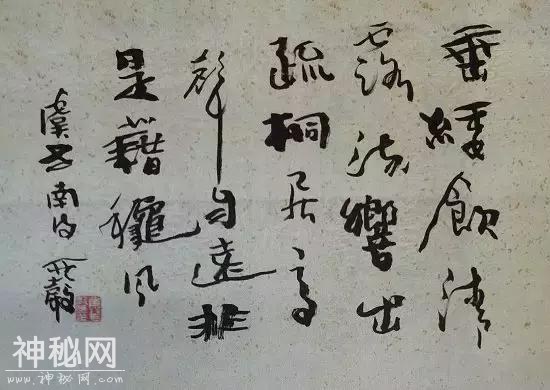 垂緌飲清
露流響出
疏桐居高
聲自遠非
是藉龝風
虞世南句
神秘网
www.神秘网.com